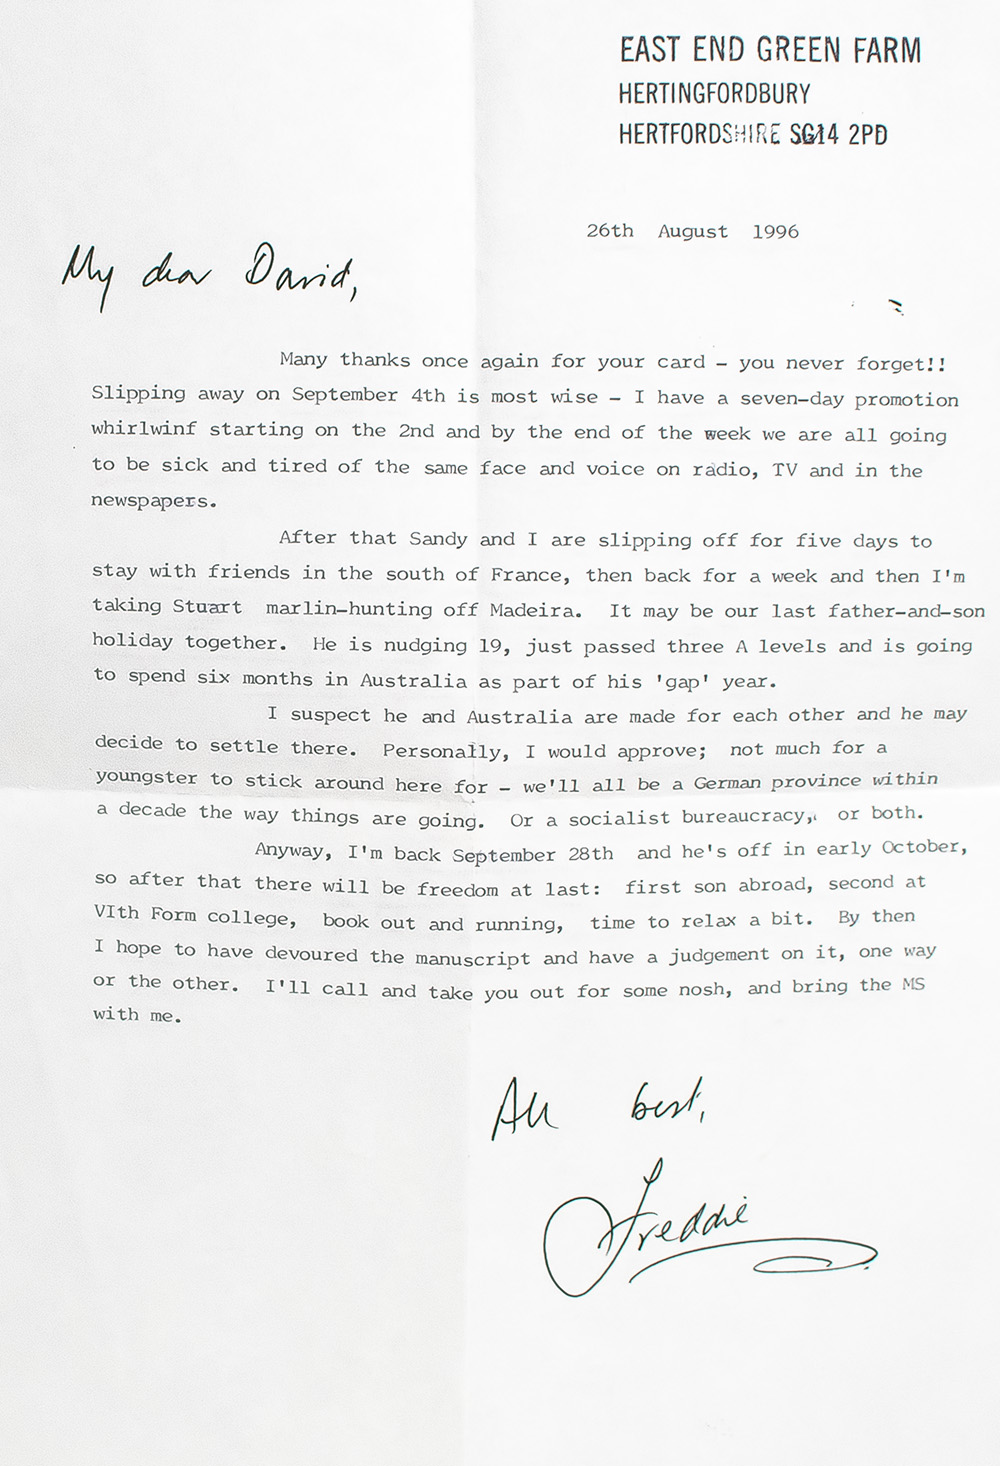 EAST END GREEN FARM
HERTINGFORDBURY
HERTFORDSHIRE SG14 2PD
26th August 1996
My dear David,
Many thanks once again for your card - you never forget!!
Slipping away on September 4th is most wise - I have a seven-day promotion
whirlwinf starting on the 2nd and by the end of the week we are all going
to be sick and tired of the same face and voice on radio, TV and in the
newspapers.
After that Sandy and I are slipping off for five days to
stay with friends in the south of France, then back for a week and then I'm
taking Stuart marlin-hunting off Madeira. It may be our last father-and-son
holiday together. He is nudging 19, just passed three A levels and is going
to spend six months in Australia as part of his 'gap' year.
I suspect he and Australia are made for each other and he may
decide to settle there. Personally, I would approve; not much for a
youngster to stick around here for - we'll all be a German province within
a decade the way things are going. Or a socialist bureaucracy, or both.
Anyway, I'm back September 28th and he's off in early October,
so after that there will be freedom at last: first son abroad, second at
VIth Form college, book out and running, time to relax a bit. By then
I hope to have devoured the manuscript and have a judgement on it, one way
or the other. I'll call and take you out for some nosh, and bring the MS
with me.
All best,
Freddie